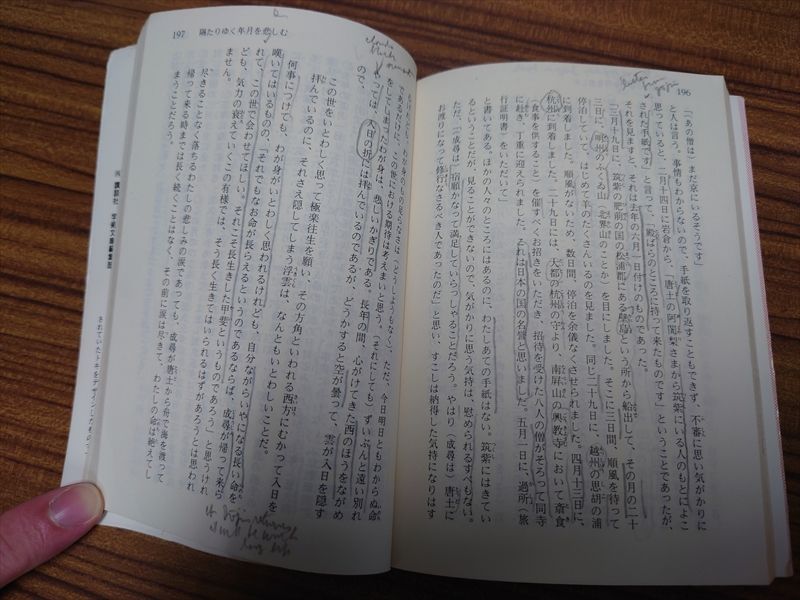 196
「『あの僧は』まだ京にいるそうです」
と人は言う。事情もわからないので、手紙を取り返すこともできず、不審に思い気がかりに
思っていると、二月十四日に岩倉から、「唐土の阿闍梨さまから筑紫にいる人のもとによこ
された手紙です」と言って、「殿ばらのところに持って来たものです」ということであったが、
それを見ますと、それは去年の六月一日付けのものであった。
「三月十九日に、筑紫の肥前の国の松浦郡にある壁島という所から船出して、その月の二十
三日に、明州のふくゐ山（北界山のことか）を目にしました。そこに三日間、順風を待って
停泊していて、はじめて羊のたくさんいるのを見ました。同じ二十九日に、越州の思胡の浦
に到着しました。順風がないため、数日間、停泊を余儀なくさせられました。四月十三日に、
杭州に到着しました。二十九日には、大都の杭州の守より、南屏山の興教寺において斎食
（食事を供すること）を催すべくお招きをいただき、招待を受けた八人の僧がそろって同寺
に赴き、丁重に迎えられました。それは日本の国の名誉と思いました。五月一日に、過所（旅
行証明書）をいただいて」
と書いてある。ほかの人々のところにはあるのに、わたしあての手紙はない。筑紫にはきてい
るということだが、見ることができないので、気がかりに思う気持は、慰められるすべもない。
ただ、「成尋は）宿願かなって満足していらっしゃることだろう。やはり（成尋は）唐土に
お渡りになって修行なさるべき人であったのだ」と思い、すこしは納得した気持になりはす
197 隔たりゆく年月を悲しむ
であるだけに、この世における期待は考えまいと思う。それにしても）ずいぶんと遠い別れ
をしてしまったわが身は、悲しいかぎりである。長年の間、心がけてきた西のほうをながめ
やっては、入日の折には拝んでいるのであるが、どうかすると空が曇って、雲が入日を隠す
ので、
この世をいとわしく思って極楽往生を願い、その方角といわれる西方にむかって入日を
拝んでいるのに、それさえ隠してしまう浮雲は、なんともいとわしいことだ。
何事につけても、わが身がいとわしく思われるけれども、自分ながらいやになる長い命を
嘆いてはいるものの、「それでもなお命が長らえるというのであるならば、成尋が帰って来ら
れて、この世で会わせてほしい。それこそ長生きした甲斐というものであろう」と思うけれ
ども、気力の衰えていくこの有様では、そう長く生きてはいられるはずがあろうとは思われ
ません。
尽きることなく落ちるわたしの悲しみの涙であっても、成尋が唐土から舟で海を渡って
帰って来る時までは長く続くことはなく、その前に涙は尽きて、わたしの命は絶えてし
まうことだろう。
㈱講談社 学術文庫編集部